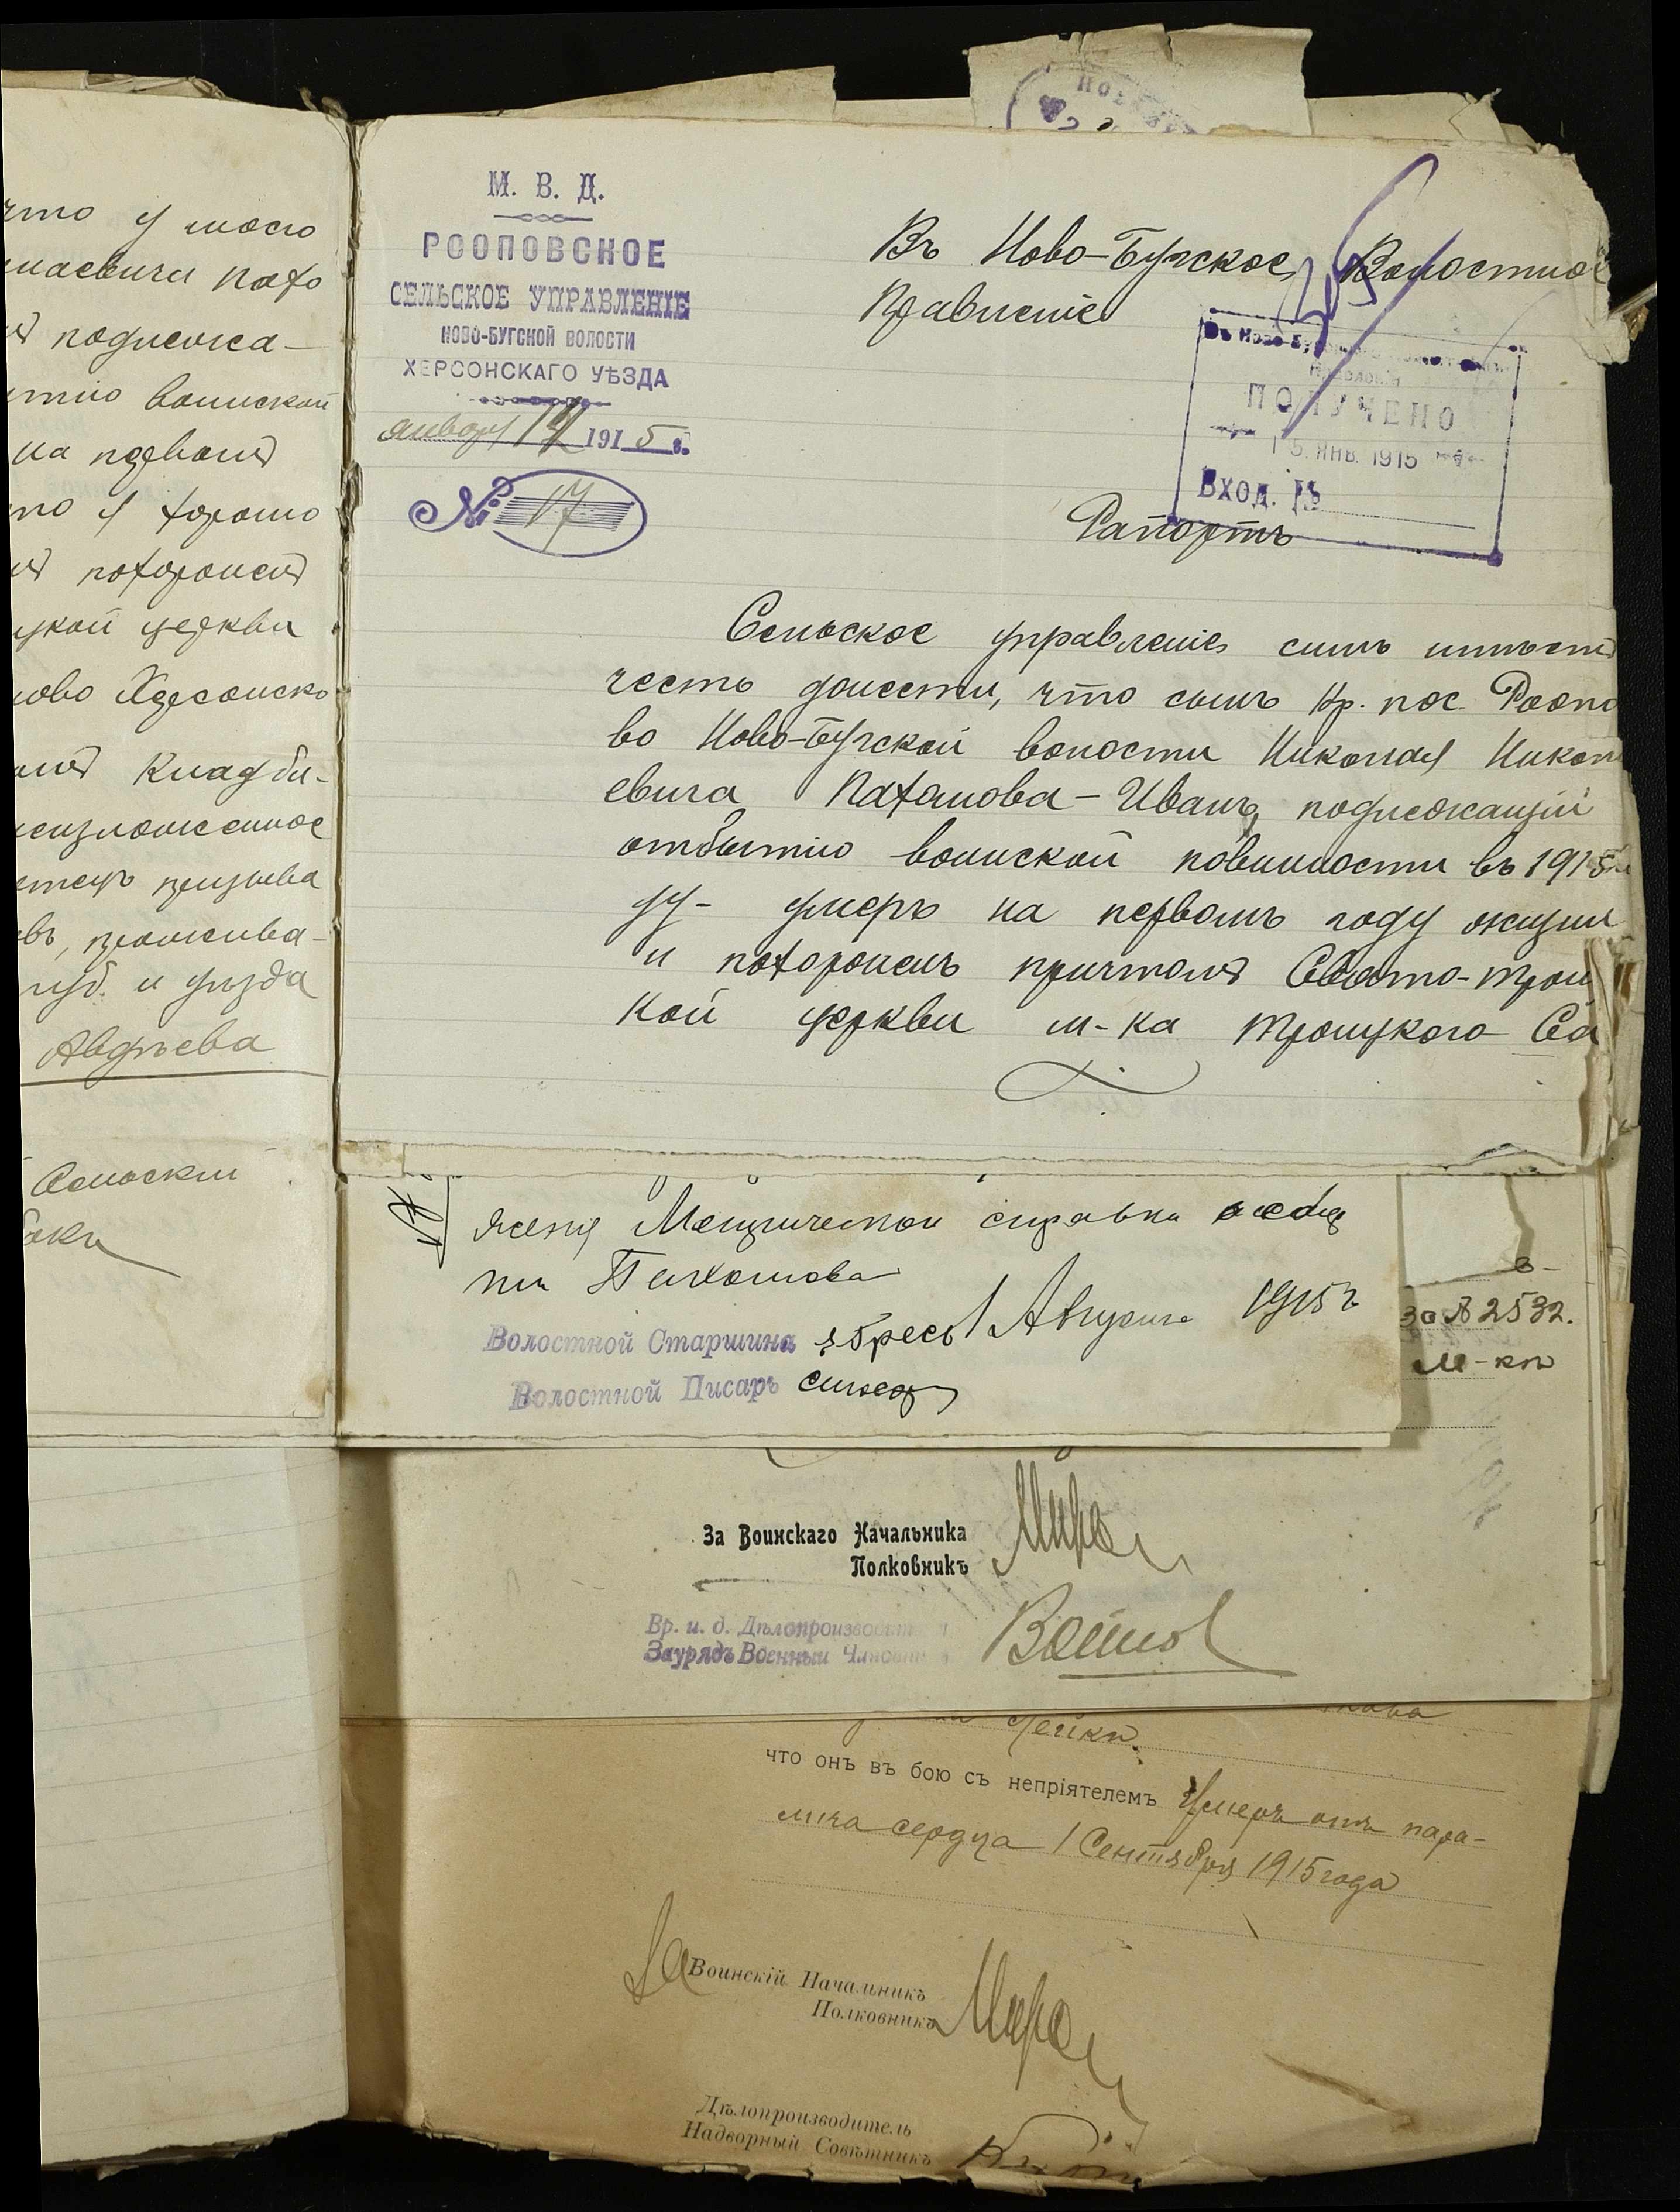 что у моего
лаевича Пахо
подлежа-
отбытію воинской
на первомъ
что я хорошо
похороненъ
цкой церкви
ново Херсонско
Кладби-
вышеизложенное
призыва
въ, прожива-
губ. и уѣзда
Авдѣева
Сельскій
М. В. Д.
РООПОВСКОЕ
СЕЛЬСКОЕ УПРАВЛЕНІЕ
НОВО-БУГСКОЙ ВОЛОСТИ
ХЕРСОНСКАГО УѢЗДА
января 14 1915 г.
№ 17
Въ Ново-Бугское Волостное
Правленіе
ПОЛУЧЕНО
15 ЯНВ. 1915
Вход. №
Рапортъ
Сельское управленіе симъ имѣетъ
честь донести, что сынъ кр. пос. Роопо
во Ново-Бугской волости Николая Никол
евича Пахомова-Иванъ, подлежащій
отбытію воинской повинности въ 1915
ду- умеръ на первомъ году жизни
и похороненъ причтомъ Свято-Трои
кой церкви м-ка Троицкого Са
Метрической справки
Пахомова
1 Августа 1915 г
Волостной Старшина
Волостной Писарь
за № 2532.
За Воинскаго Начальника
Полковникъ
Вр. и. д. Дѣлопроизводителя
Зауряд Военный Чиновник
что онъ въ бою съ непріятелемъ Умеръ отъ пара-
лича сердца 1 Сентября 1915 года
За Воинскій Начальникъ
Полковникъ
Дѣлопроизводитель
Надворный Совѣтникъ